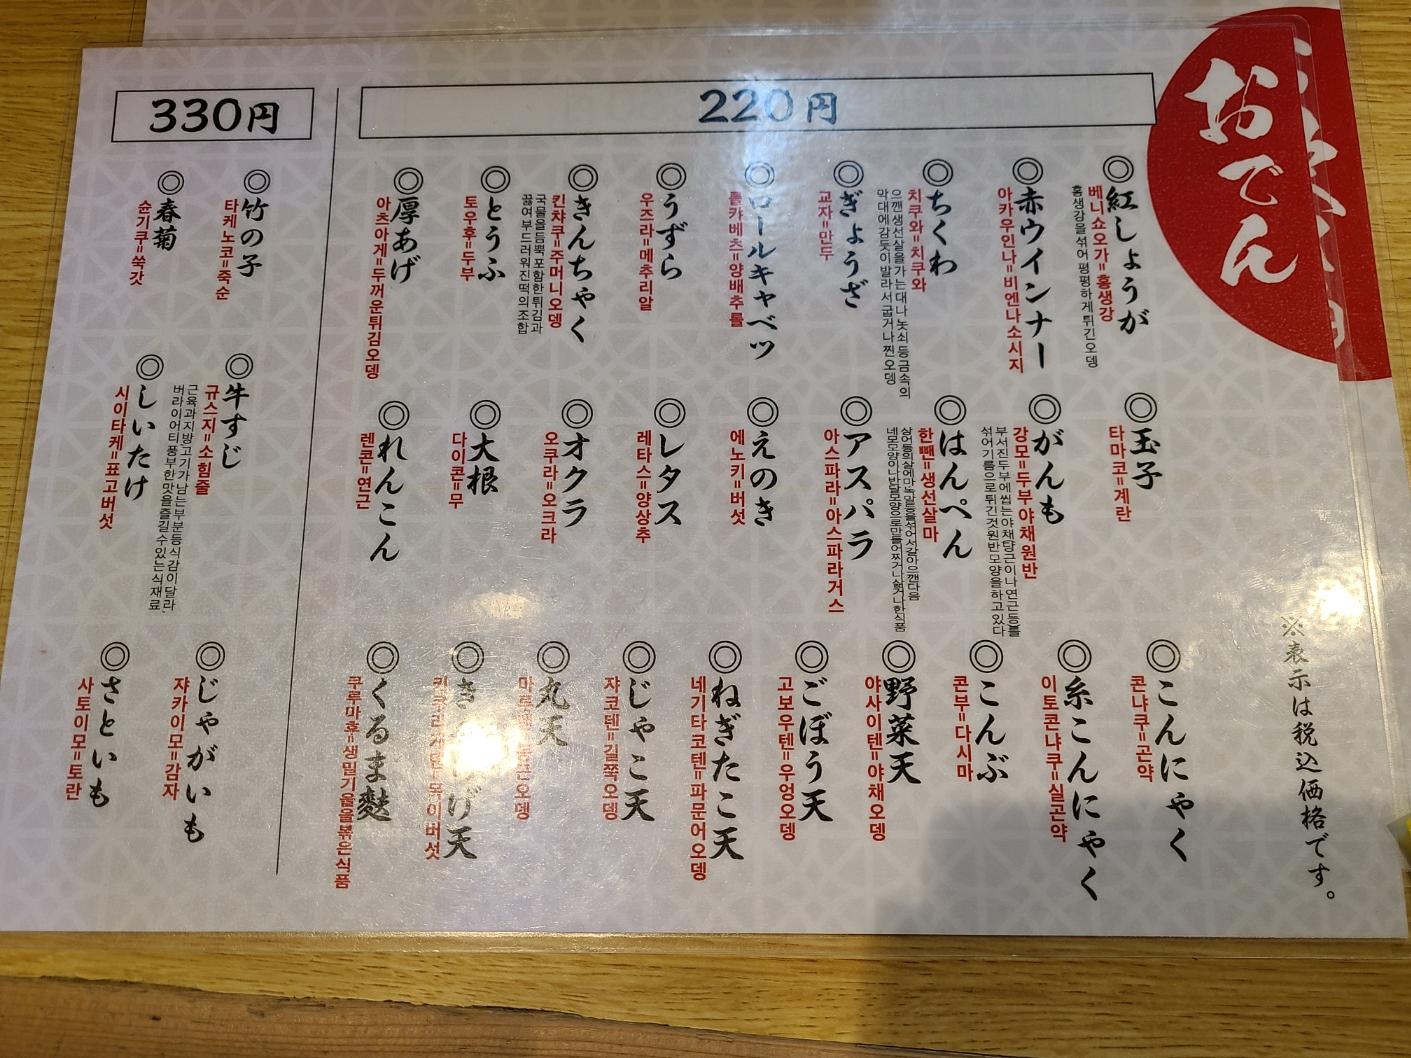 おでん
220円
◎紅しょうが
베니쇼오가=홍생강
홍생강을섞어평평하게튀긴오뎅
◎赤ウインナー
아카우인나=비엔나소시지
◎ちくわ
치쿠와=치쿠와
으깬생선살을가는대나놋쇠등금속의
막대에감듯이발라서굽거나찐오뎅
◎ぎょうざ
교자=만두
◎ロールキャベツ
롤캬베츠=양배추롤
◎うずら
우즈라=메추리알
◎きんちゃく
킨챠쿠=주머니오뎅
국물을듬뿍포함한튀김과
끓여부드러워진떡의조합
◎とうふ
토우후=두부
◎厚あげ
아츠아게=두꺼운튀김오뎅
◎玉子
타마코=계란
◎がんも
강모=두부야채원반
부서진두부에씹는야채당근이나연근등를
섞어기름으로튀긴것원반모양을하고있다
◎はんぺん
한뺀=생선살마
◎アスパラ
아스파라=아스파라거스
◎えのき
에노키=버섯
◎レタス
레타스=양상추
◎オクラ
오쿠라=오크라
◎大根
다이콘=무
◎れんこん
렌콘=연근
◎こんにゃく
콘냐쿠=곤약
◎糸こんにゃく
이토콘냐쿠=실곤약
◎こんぶ
콘부=다시마
◎野菜天
야사이텐=야채오뎅
◎ごぼう天
고보우텐=우엉오뎅
◎ねぎたこ天
네기타코텐=파문어오뎅
◎じゃこ天
쟈코텐=길쭉오뎅
◎丸天
◎き げ天
◎くるま麩
쿠루마후=생밀기울을볶은식품
330円
◎竹の子
타케노코=죽순
◎春菊
순기쿠=쑥갓
◎牛すじ
규스지=소힘줄
근육과지방고기가남는부분등식감이달라
버라이어티풍부한맛을즐길수있는식재료
◎しいたけ
시이타케=표고버섯
◎じゃがいも
쟈카이모=감자
◎さといも
사토이모=토란
※表示は税込価格です。